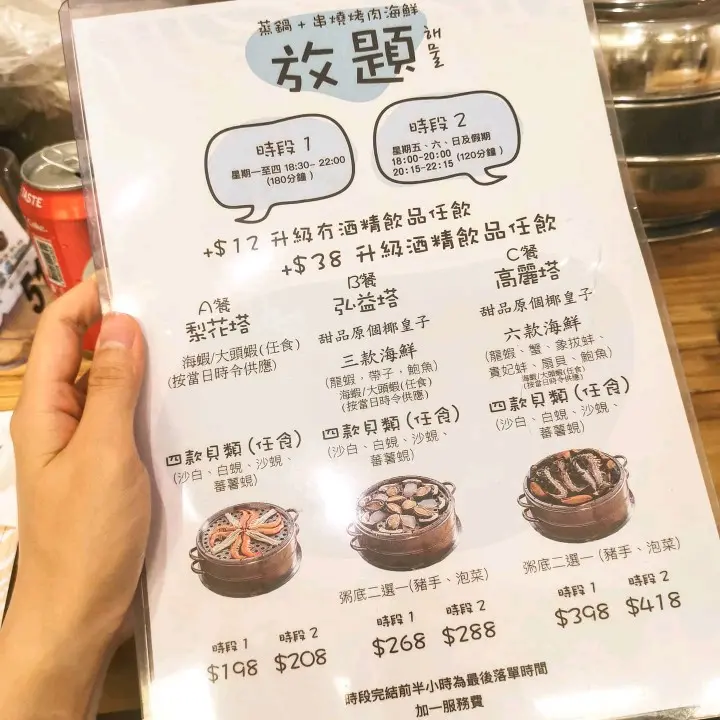 蒸鍋 + 串燒烤肉海鮮
放題
해물
時段 1
星期一至四 18:30- 22:00
(180分鐘 )
時段 2
星期五、六、日及假期
18:00-20:00 (120分鐘 )
20:15-22:15
+$12 升級冇酒精飲品任飲
+$38 升級酒精飲品任飲
A餐
梨花塔
海蝦/大頭蝦(任食)
(按當日時令供應)
四款貝類 (任食)
(沙白、白蜆、沙蜆、
蕃薯蜆)
時段 1
$198
時段 2
$208
B餐
弘益塔
甜品原個椰皇子
三款海鮮
(龍蝦，帶子，鮑魚)
海蝦/大頭蝦(任食)
(按當日時令供應)
四款貝類 (任食)
(沙白、白蜆、沙蜆、
蕃薯蜆)
粥底二選一(豬手、泡菜)
時段 1
$268
時段 2
$288
C餐
高麗塔
甜品原個椰皇子
六款海鮮
(龍蝦、蟹、象拔蚌、
貴妃蚌、扇貝、鮑魚)
海蝦/大頭蝦(任食)
(按當日時令供應)
四款貝類 (任食)
(沙白、白蜆、沙蜆、
蕃薯蜆)
粥底二選一 (豬手、泡菜)
時段 1
$398
時段 2
$418
時段完結前半小時為最後落單時間
加一服務費
TASTE